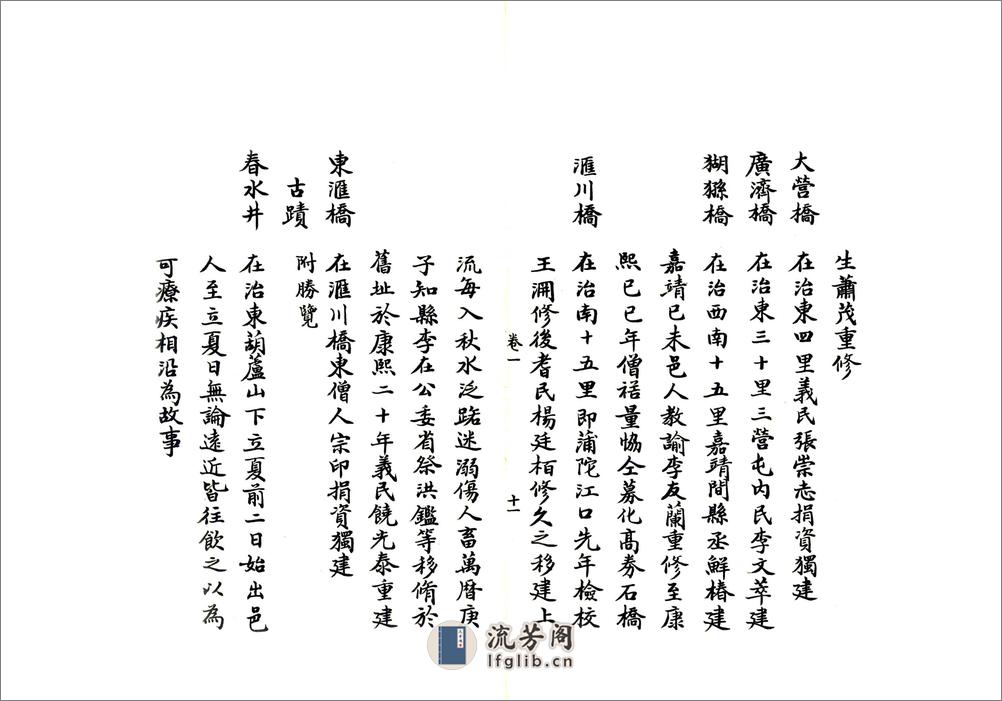 生蕭茂重修
大營橋 在治東四里義民張崇志捐資獨建
廣濟橋 在治東三十里三營屯內民李文萃建
猢猻橋 在治西南十五里嘉靖間縣丞鮮椿建
嘉靖己未邑人教諭李友蘭重修至康
熙己巳年僧祰量恊仝募化髙券石橋
滙川橋 在治南十五里即蒲陀江口先年檢校
王淵修後耆民楊廷栢修久之移建上
卷一
十一
流每入秋水泛路迷溺傷人畜萬曆庚
子知縣李在公委省祭洪鑑等移脩於
舊址於康熙二十年義民饒光泰重建
東滙橋 在滙川橋東僧人宗印捐資獨建
古蹟 附勝覽
春水井 在治東葫蘆山下立夏前二日始出邑
人至立夏日無論遠近皆往飲之以為
可療疾相沿為故事
流芳阁
lfglib.cn